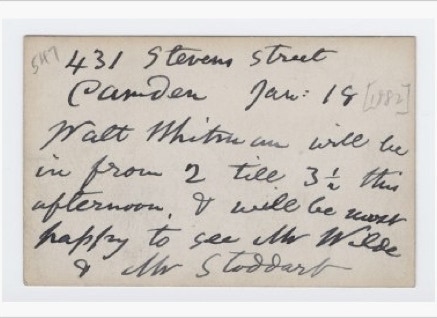 5117
431 Stevens Street
Camden Jan: 18 [1882]
Walt Whitman will be
in from 2 till 3½ this
afternoon, & will be most
happy to see Mr Wilde
& Mr Stoddart